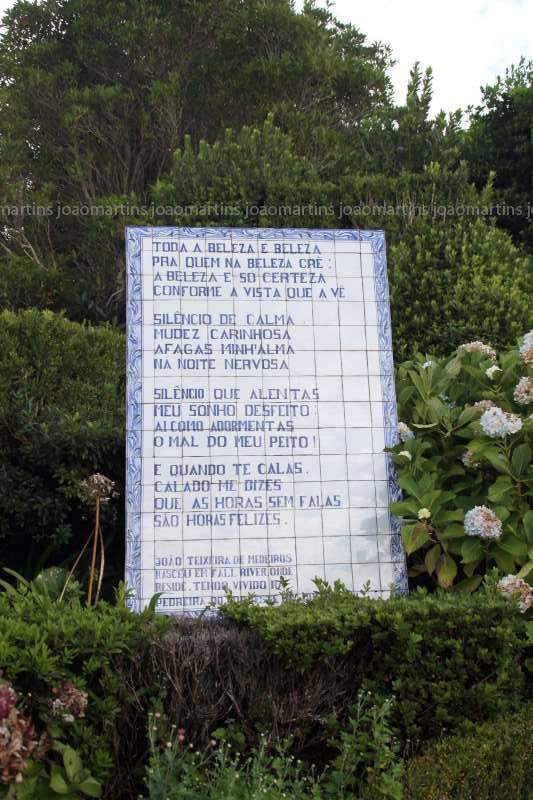 joaomartins joaomartins joaomartins joaomartins joaomartins
TODA A BELEZA É BELEZA
PRA QUEM NA BELEZA CRÊ:
A BELEZA É SÓ CERTEZA
CONFORME A VISTA QUE A VÊ
SILÊNCIO DE CALMA
MUDEZ CARINHOSA
AFAGAS MINH'ALMA
NA NOITE NERVOSA
SILÊNCIO QUE ALENTAS
MEU SONHO DESFEITO:
AI COMO ADORMENTAS
O MAL DO MEU PEITO!
E QUANDO TE CALAS,
CALADO ME DIZES
QUE AS HORAS SEM FALAS
SÃO HORAS FELIZES.
JOÃO TEIXEIRA DE MEDEIROS
NASCEU EM FALL RIVER, ONDE
RESIDE, TENDO VIVIDO
PEDREIRA